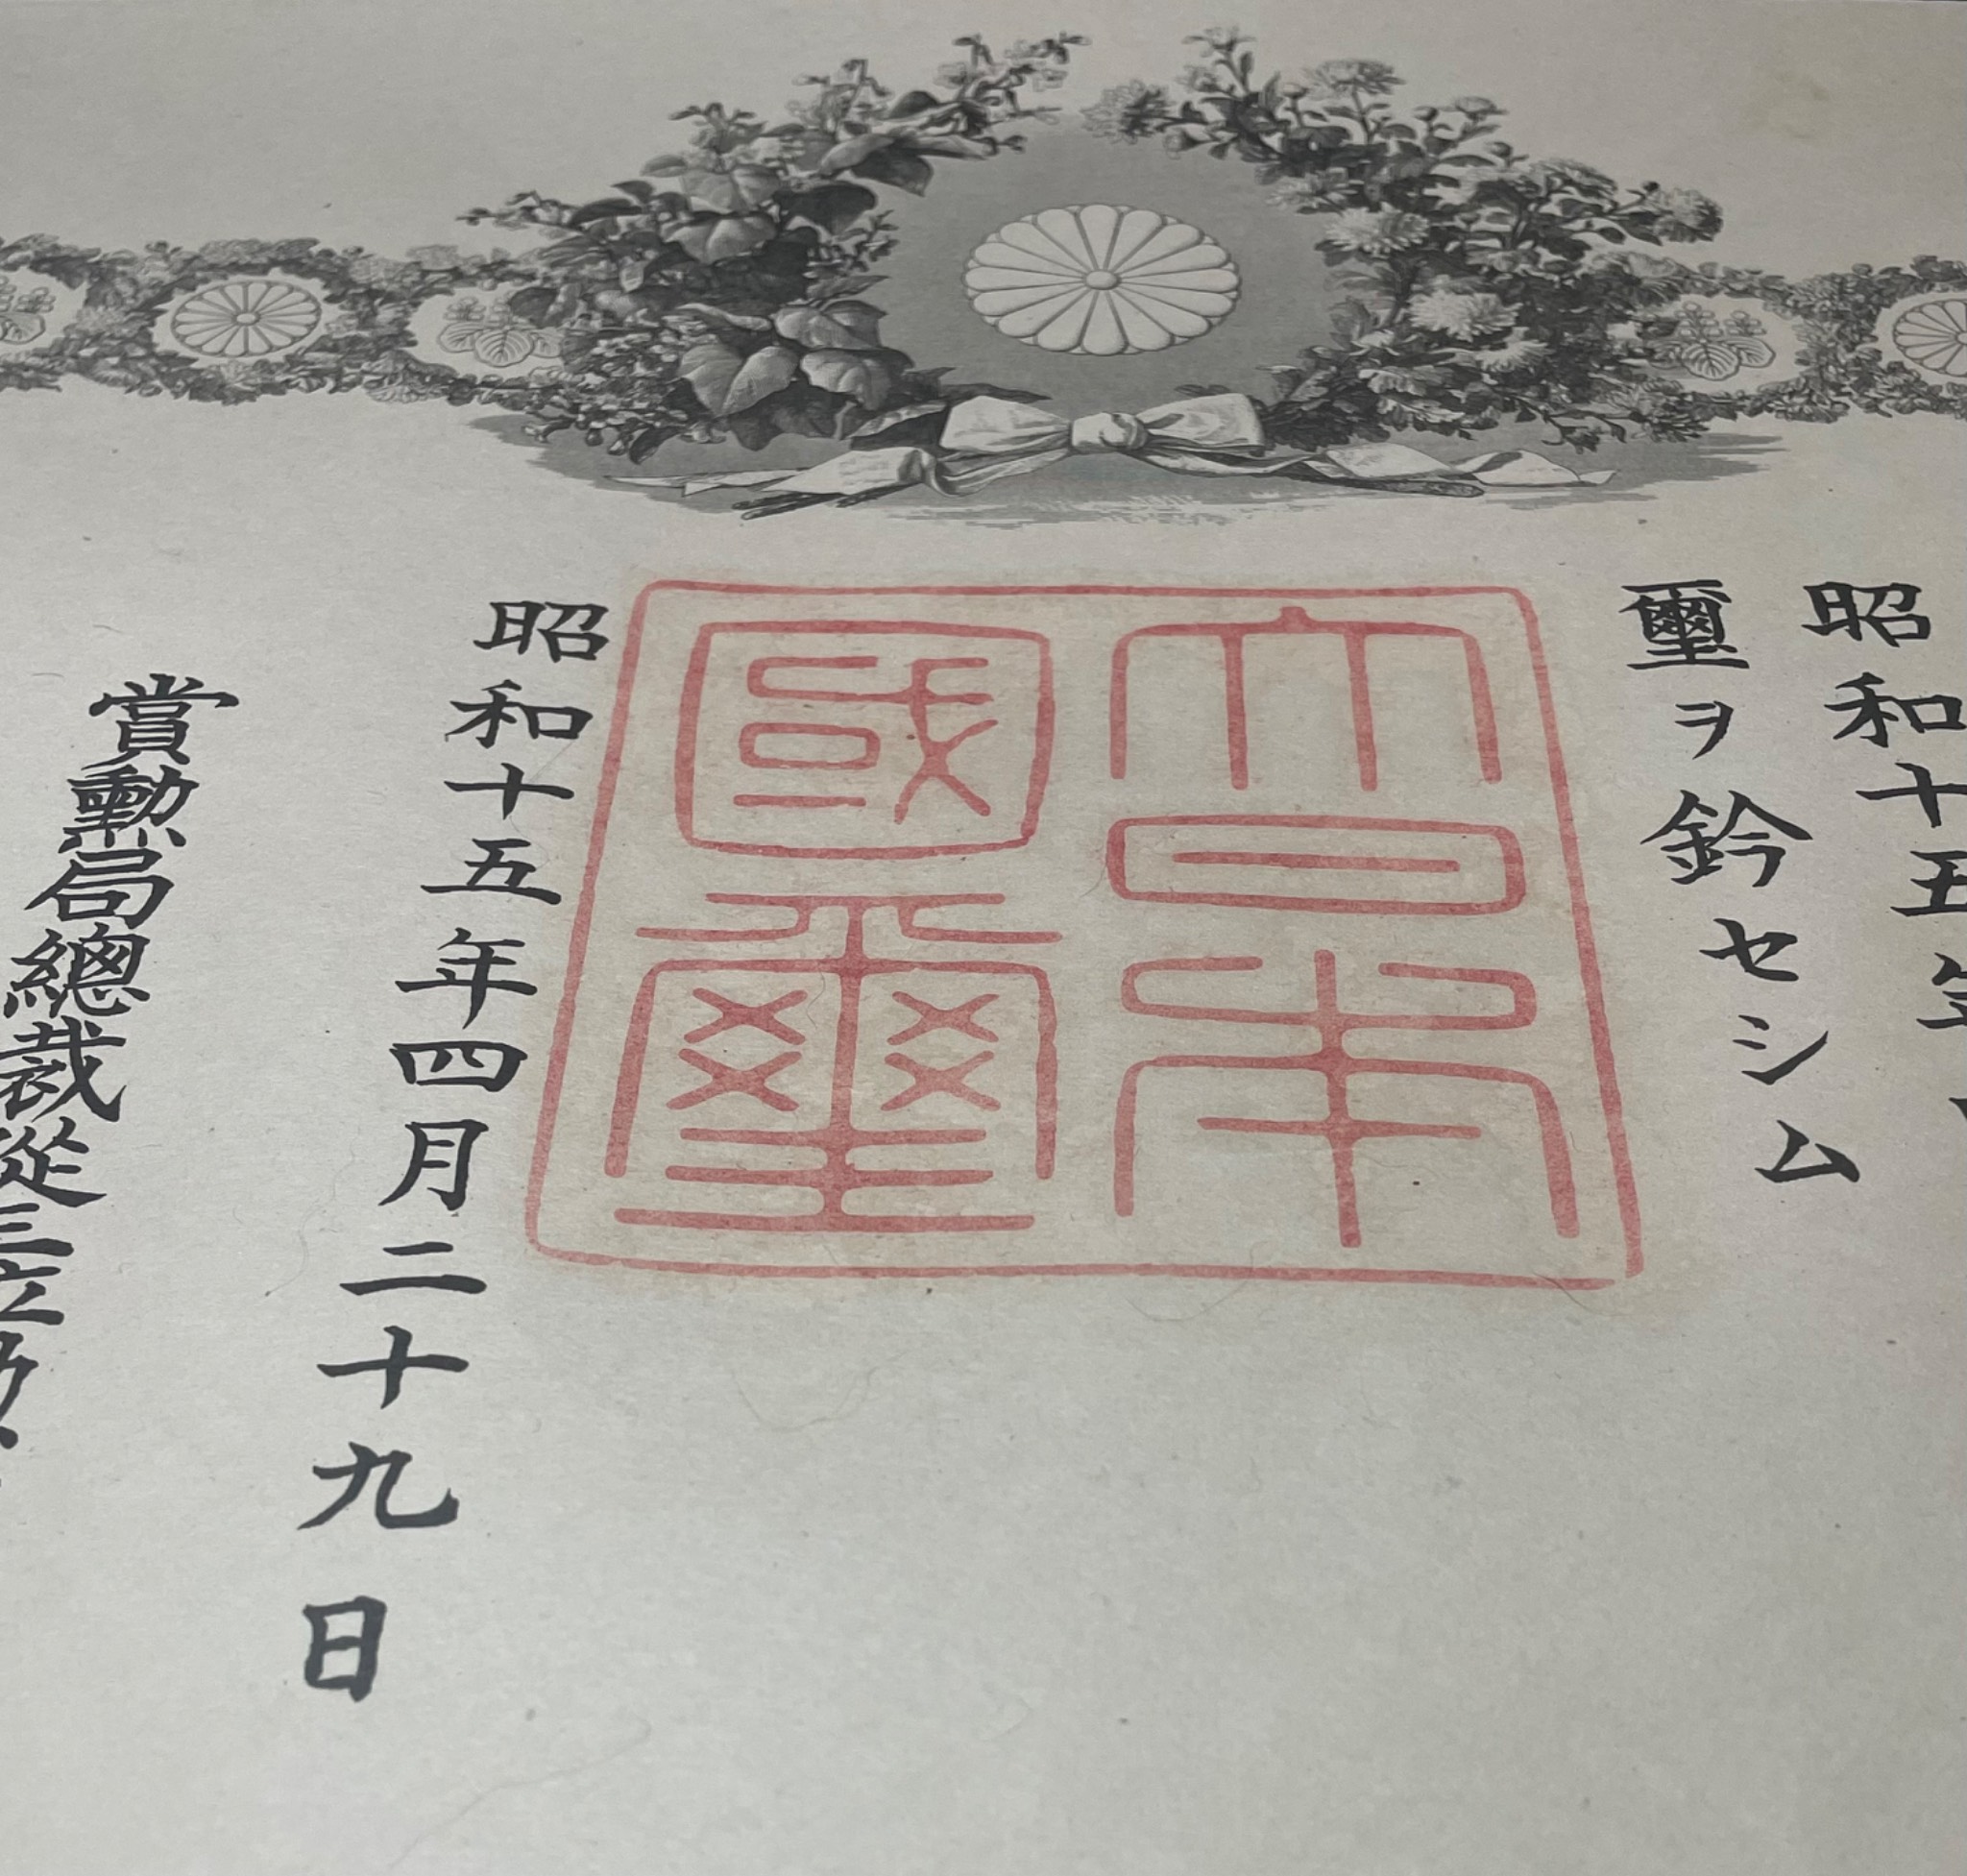 昭和十五年
璽ヲ鈐セシム
大日本
國璽
昭和十五年四月二十九日
賞勲局總裁從三位勲